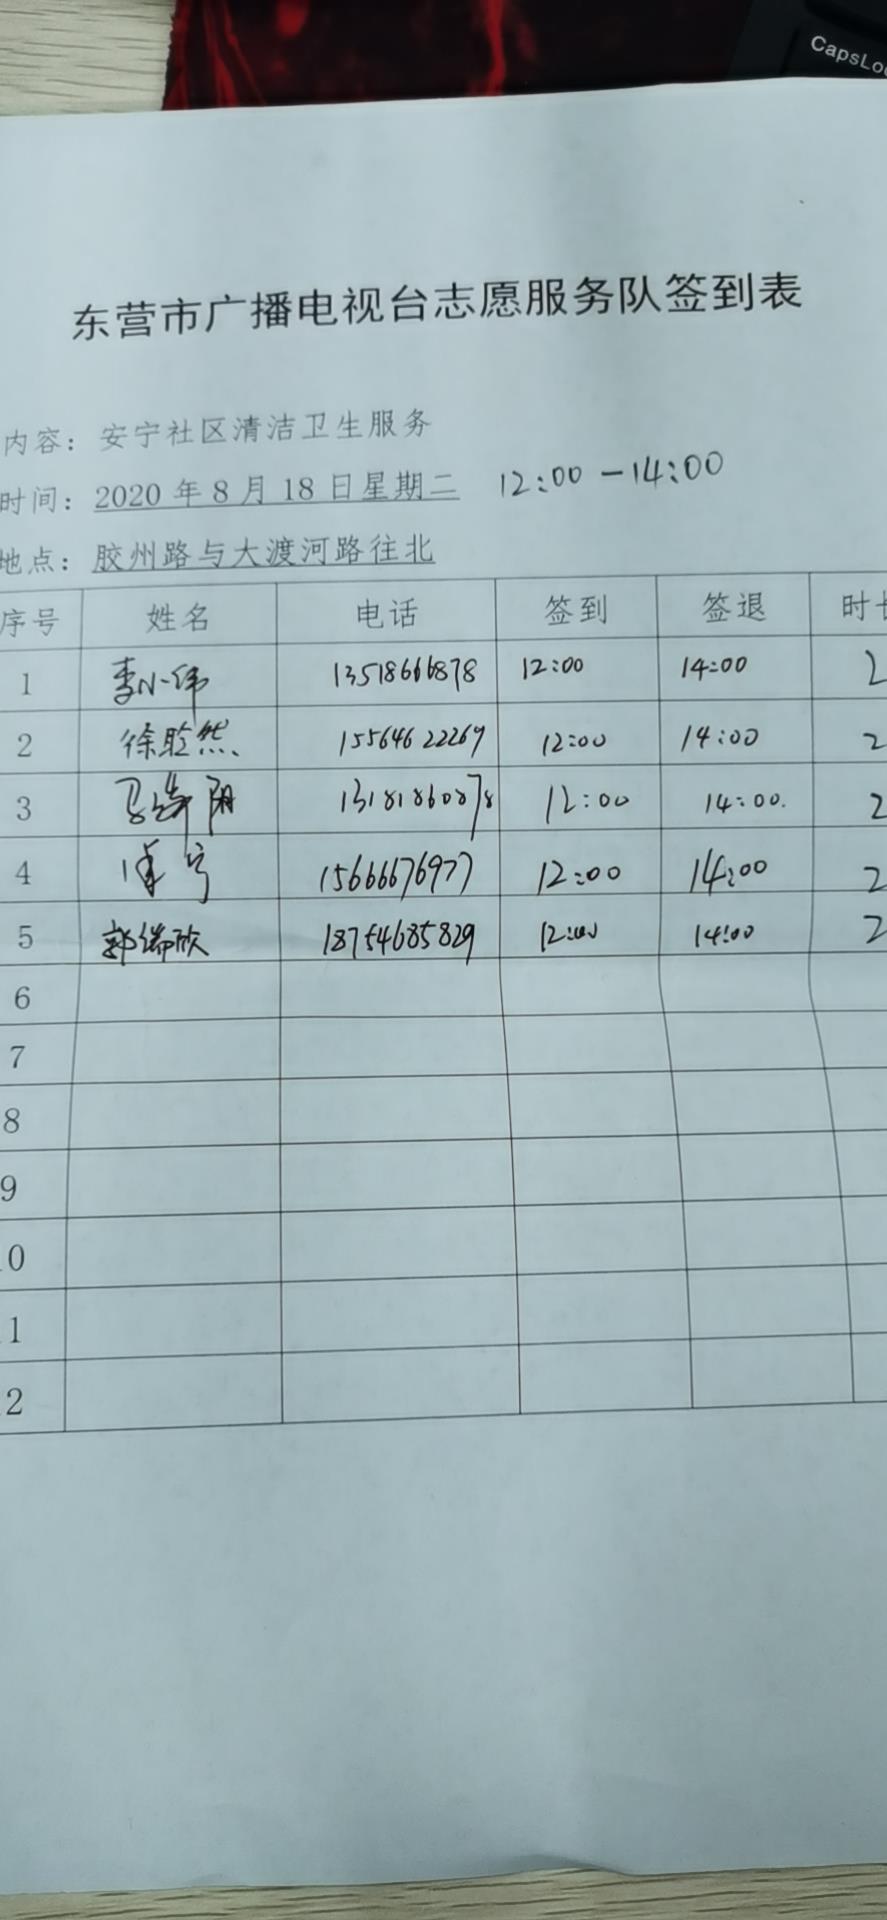 CapsLoc
东营市广播电视台志愿服务队签到表
内容：安宁社区清洁卫生服务
时间：2020年8月18日星期二 12:00－14:00
地点：胶州路与大渡河路往北
序号 姓名 电话 签到 签退 时长
1 李小伟 13518666878 12:00 14:00 2
2 徐晗然 15564622269 12:00 14:00 2
3 13181860878 12:00 14:00. 2
4 15666676977 12:00 14:00 2
5 郭瑞欣 18754685829 12:00 14:00 2
6
7
8
9
0
1
2